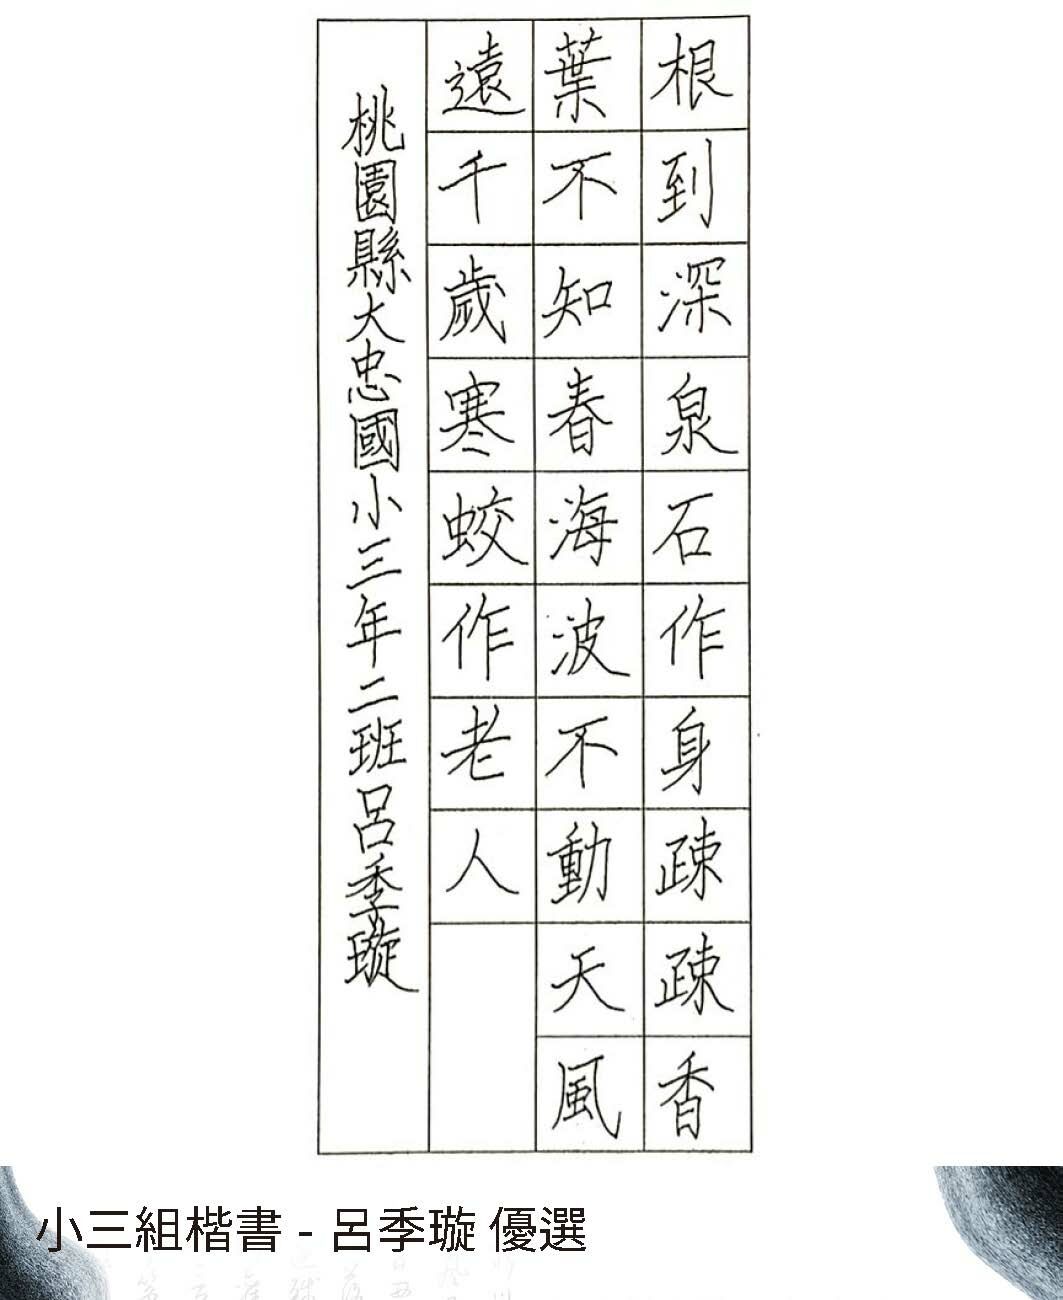 根到深泉石作身疎疎香
葉不知春海波不動天風
遠千歲寒蛟作老人
桃園縣大忠國小三年二班呂季璇
小三組楷書 - 呂季璇 優選